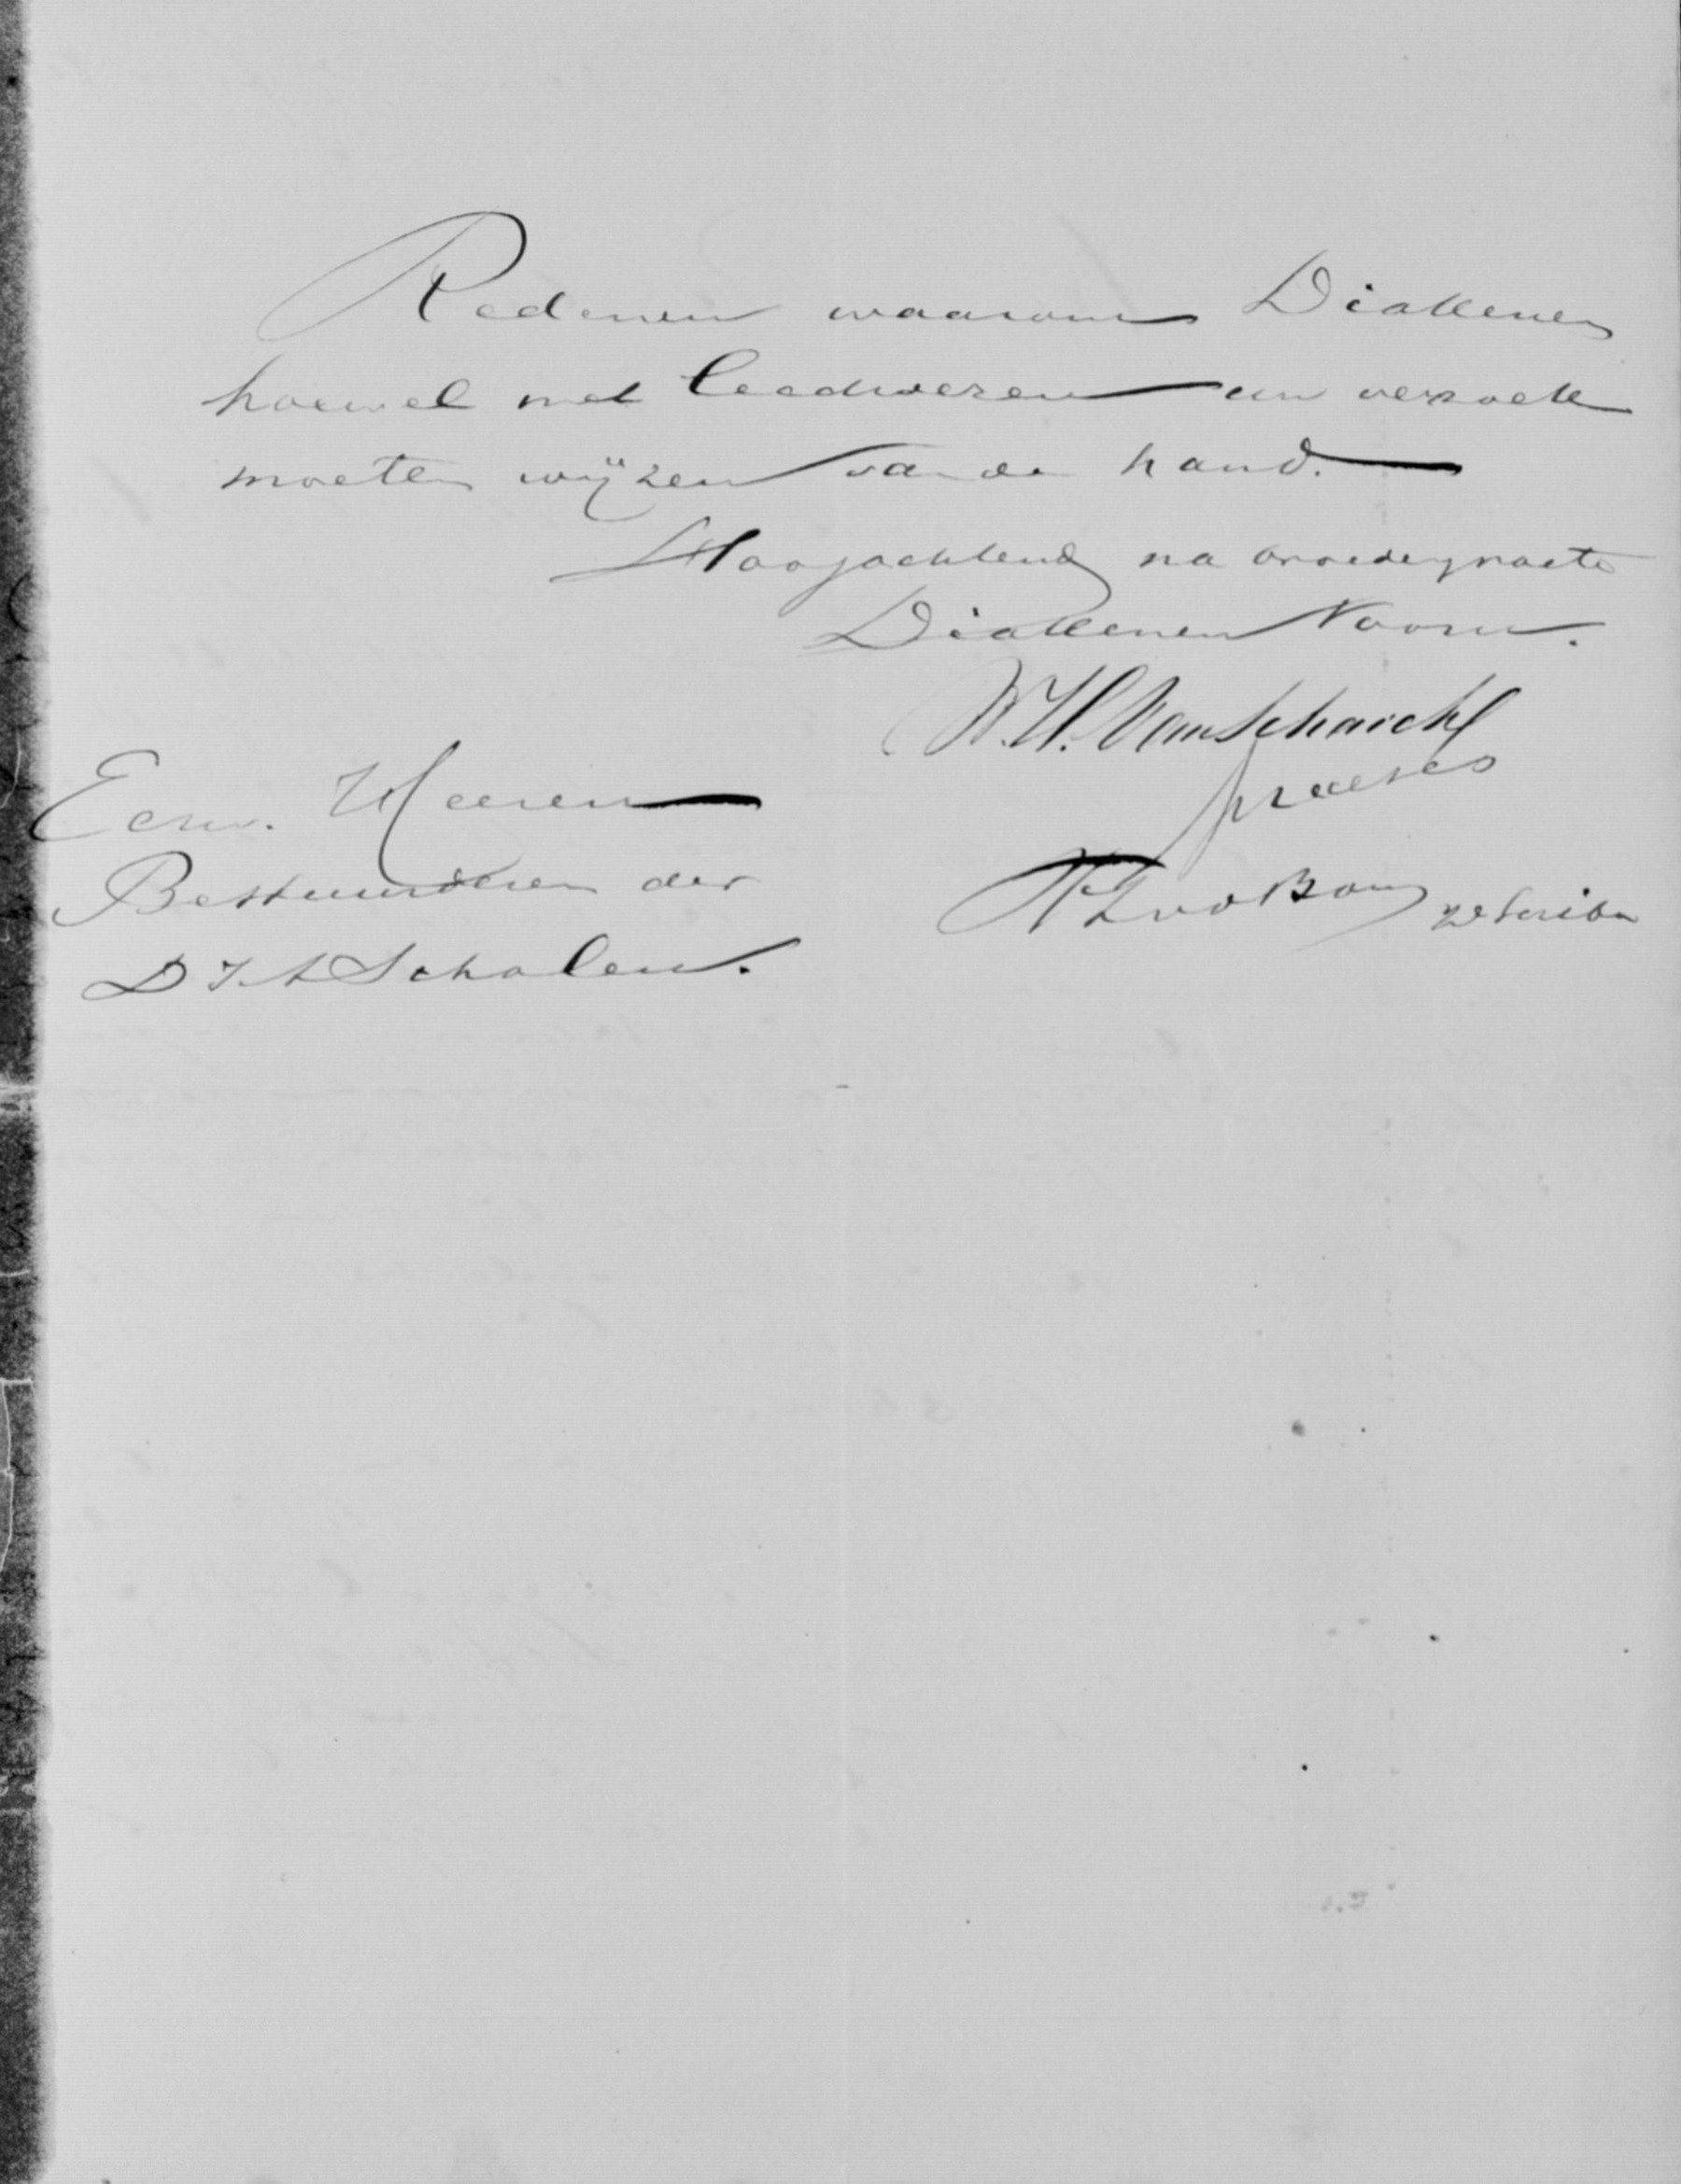 Redenen waarom Diakenen
hoewel met leedwezen uw verzoek
moeten wijzen van de hand.
Hoogachtend na broedergroete
Diakenen Voorn.
W. H. Van Schaick
praeses
Eerw. Heeren
Bestuurderen der
scriba
D I A Scholen.